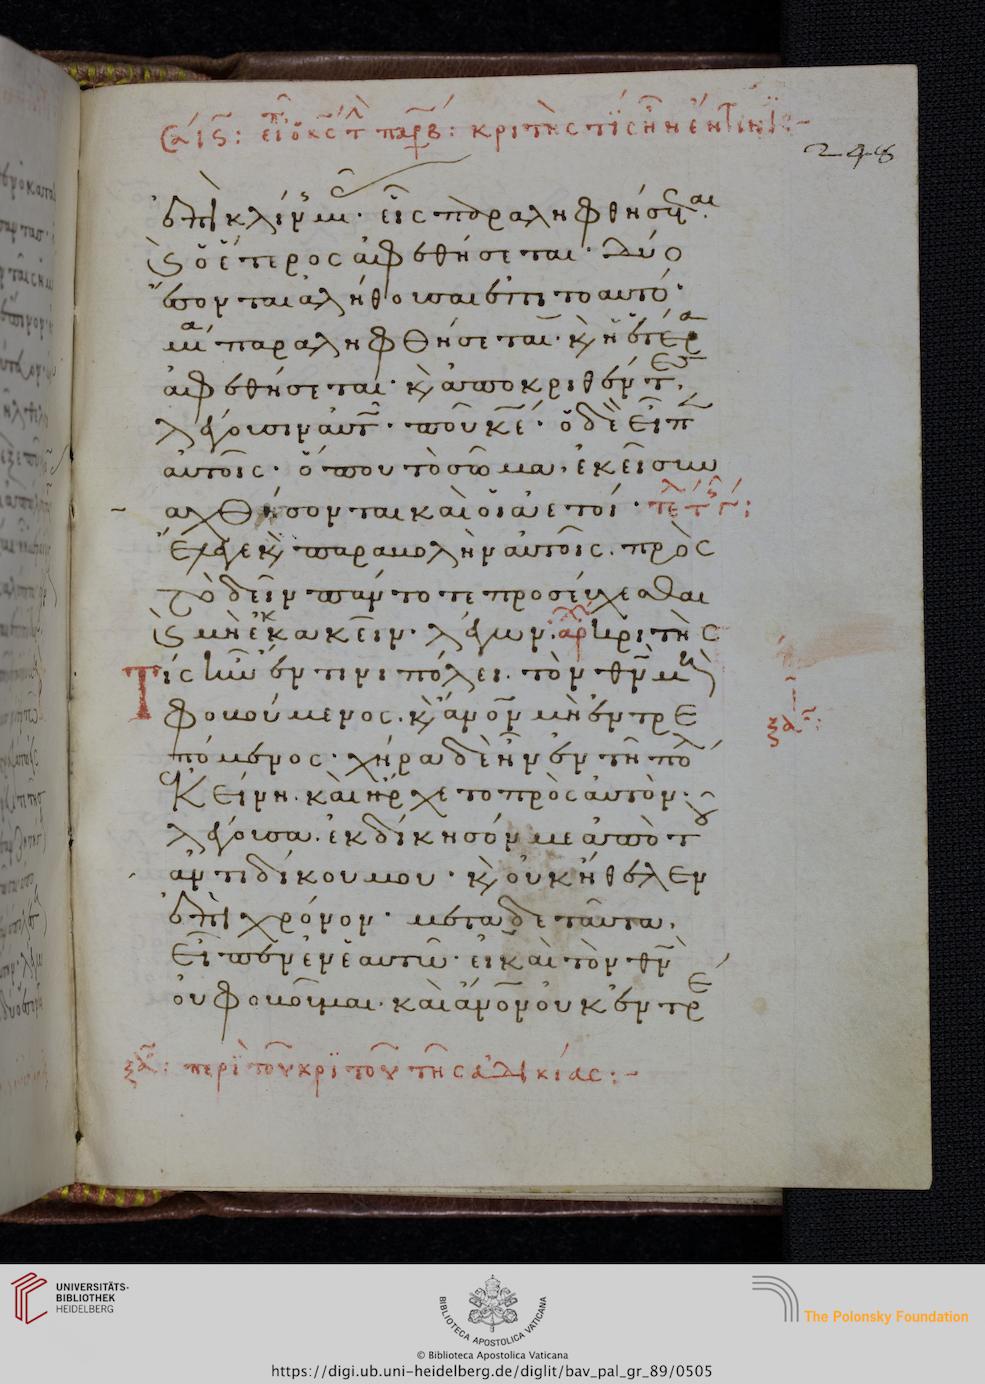 ἐπὶ κλίνης μιᾶς· εἷς παραληφθήσεται
καὶ ὁ ἕτερος ἀφεθήσεται· δύο
ἔσονται ἀλήθουσαι ἐπιτοαυτό·
μία παραληφθήσεται· καὶ ἡ ἑτέρα
ἀφεθήσεται· καὶ ἀποκριθέντες
λέγουσιν αὐτῷ· ποῦ κε· ὁ δὲ εἶπεν
αὐτοῖς· ὅπου τὸ σῶμα, ἐκεῖ συν
αχθήσονται καὶ οἱ ἀετοί·
Ἔλεγε καὶ παραβολὴν αὐτοῖς. πρὸς
τὸ δεῖν πάντοτε προσεύχεσθαι
καὶ μὴ ἐκκακεῖν· λέγων· ἀρχ κριτὴς
Τίς ἦν ἔν τινι πόλει. τὸν θν μὴ
φοβούμενος. καὶ ανον μὴ ἐντρε
πόμενος· χήρα δὲ ἦν ἐν τῇ πόλει
ἐκείνη. καὶ ἤρχετο πρὸς αὐτὸν·
λέγουσα. ἐκδίκησόν με ἀπὸ τοῦ
ἀντιδίκου μου· καὶ οὐκ ἤθελεν
ἐπὶ χρόνον· μετα δε ταῦτα,
εἶπεν ἐν ἑαυτῷ· εἰ καὶ τὸν θν
οὐ φοβοῦμαι. καὶ ανον οὐκ ἐντρε
ξα: περὶ τοῦ κριτοῦ τῆς ἀδικίας:-
248
ξα:
UNIVERSITÄTS-
BIBLIOTHEK
HEIDELBERG
BIBLIOTECA APOSTOLICA VATICANA
The Polonsky Foundation
© Biblioteca Apostolica Vaticana
https://digi.ub.uni-heidelberg.de/diglit/bav_pal_gr_89/0505